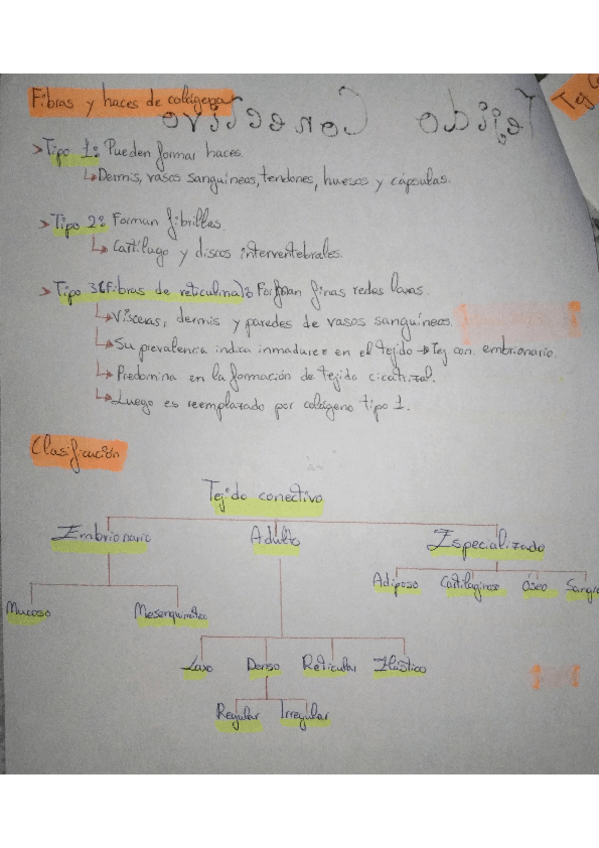 Fibras y haces de colágena
Tejido Conectivo
Tej
>Tipo 1: Pueden formar haces.
↳Dermis, vasos sanguíneos, tendones, huesos y cápsulas.
>Tipo 2: Forman fibrillas.
↳Cartílago y discos intervertebrales.
>Tipo 3(Fibras de reticulina): Forman finas redes laxas.
↳Vísceras, dermis y paredes de vasos sanguíneos.
↳Su prevalencia indica inmadurez en el tejido → Tej con. embrionario.
↳Predomina en la formación de tejido cicatrizal.
↳Luego es reemplazado por colágeno tipo 1.
Clasificación
Tejido conectivo
Embrionario Adulto Especializado
Adiposo Cartilaginoso Óseo Sangre
Mucoso Mesenquimático
Laxo Denso Reticular Elástico
Regular Irregular